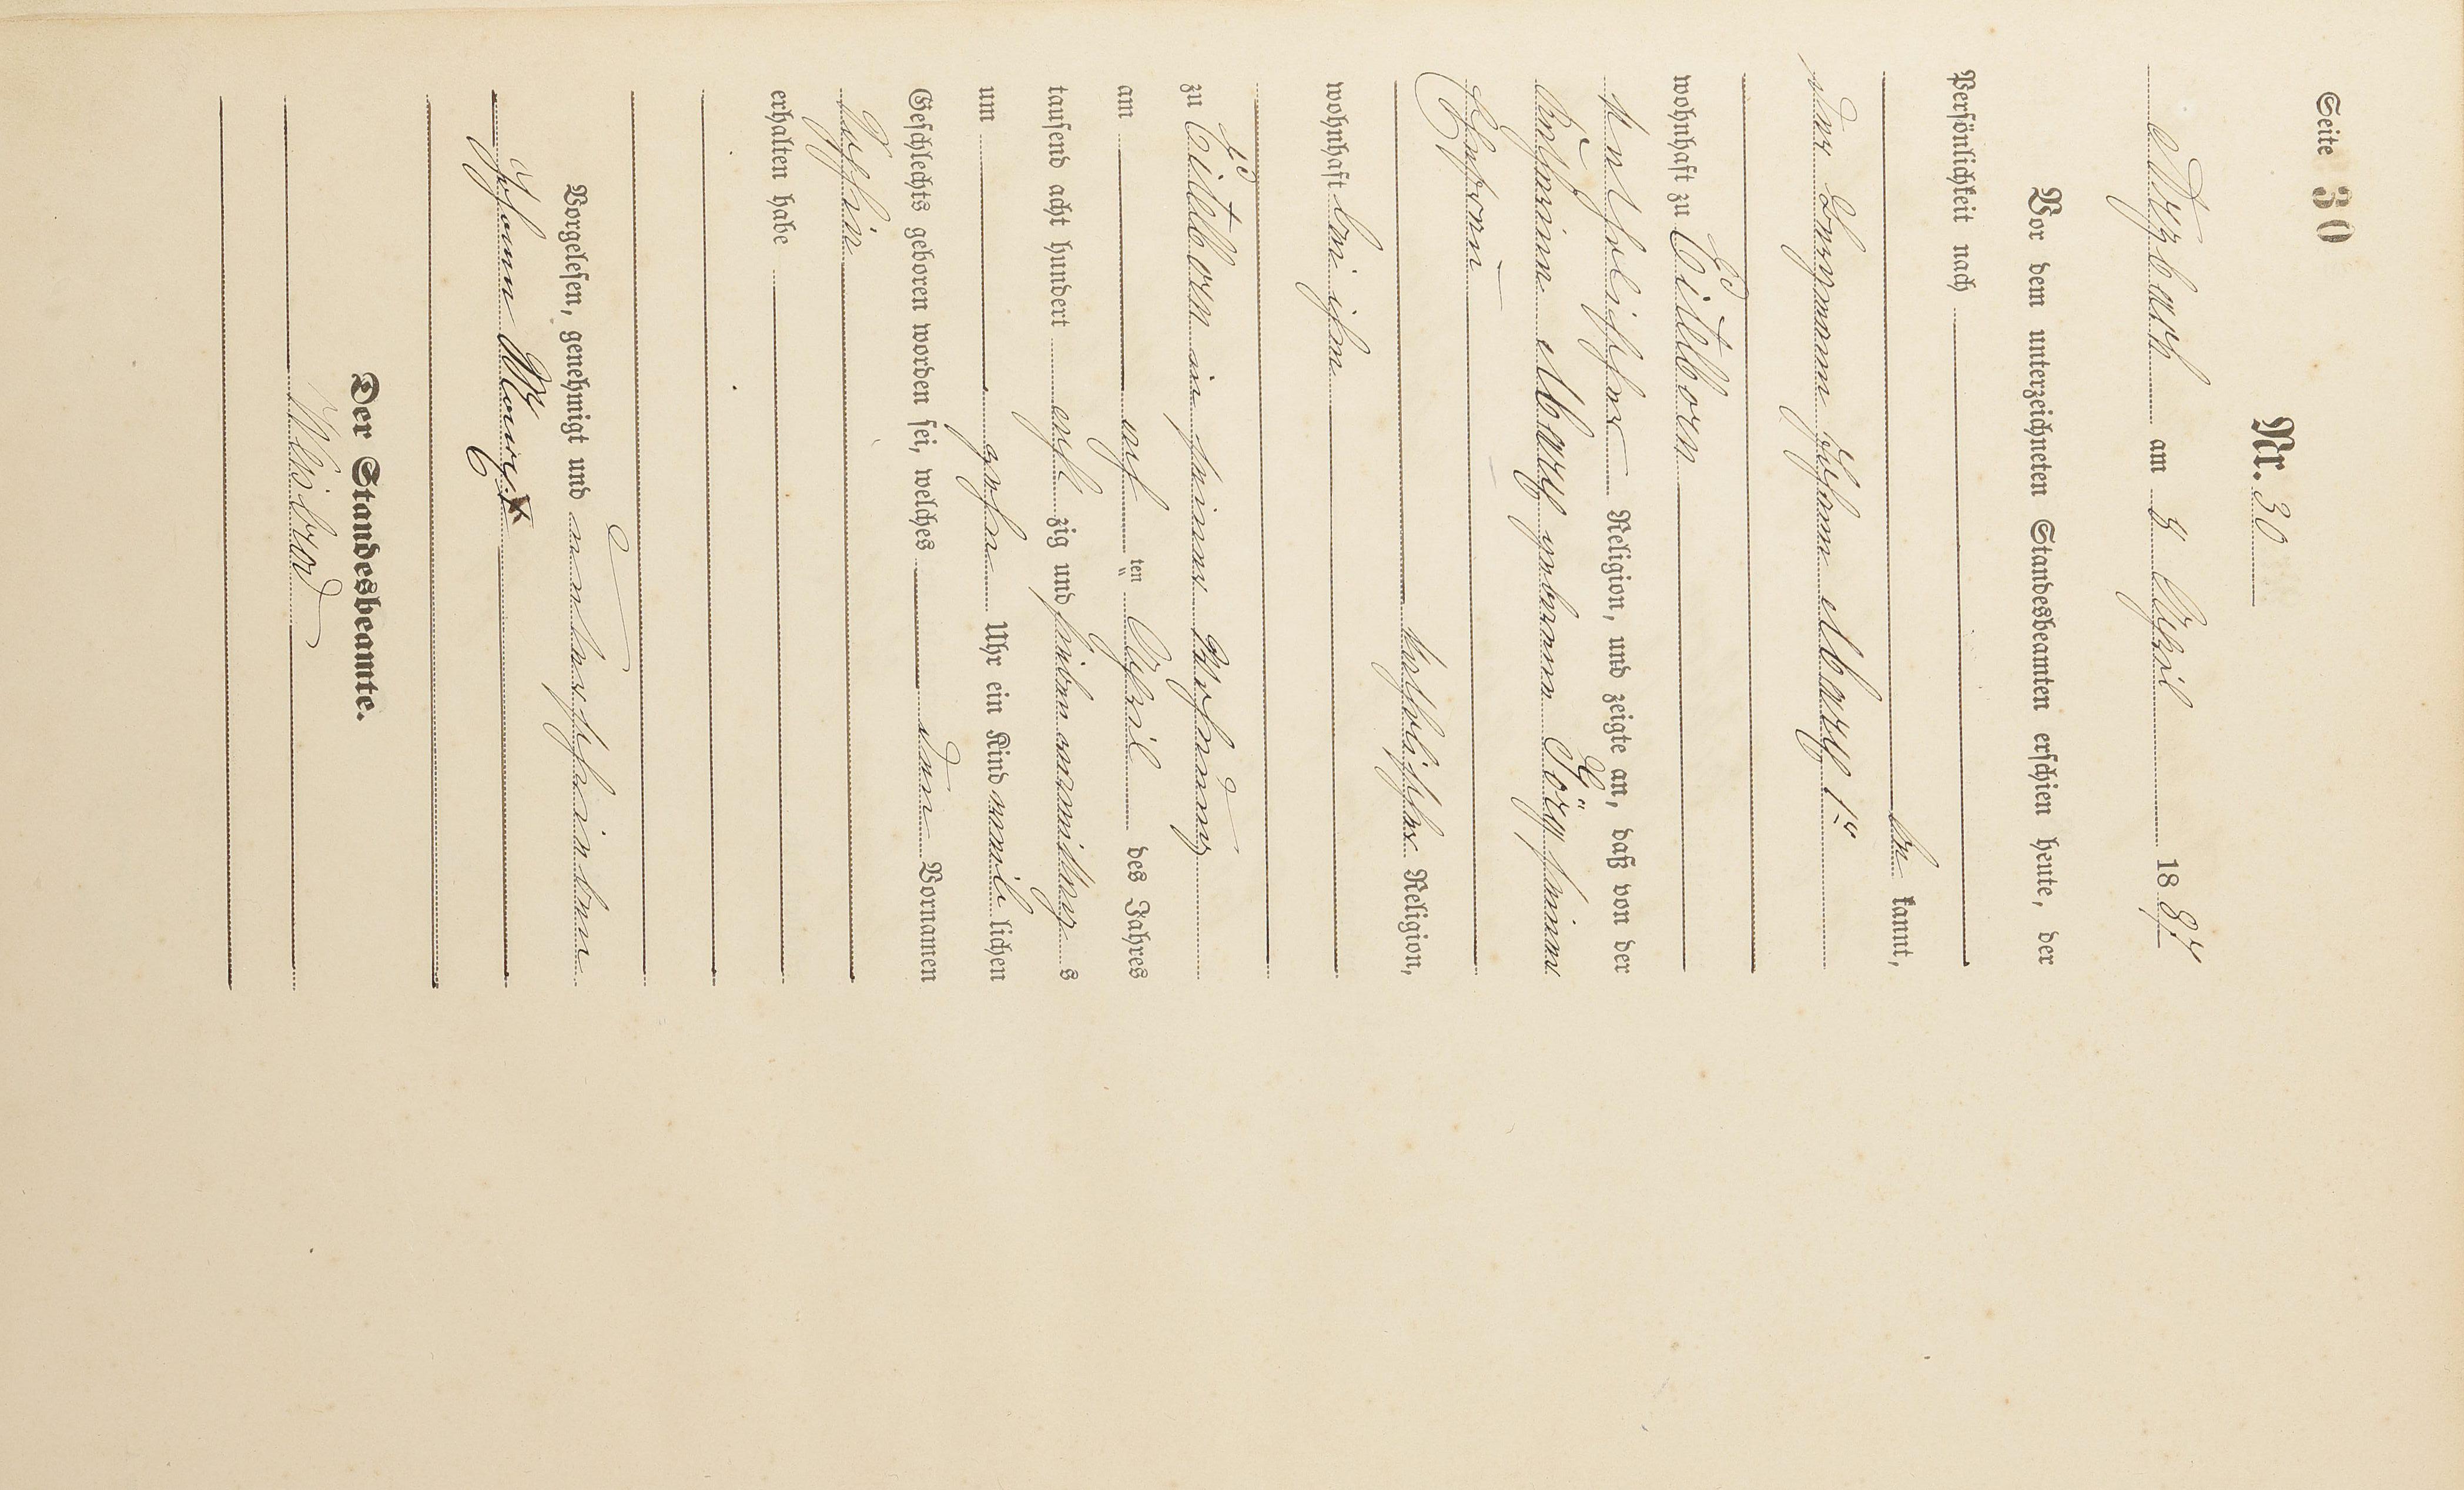 Seite 30
Nr. 30
Wyzbach am 8 April 1887
Vor dem unterzeichneten Standesbeamten erschien heute, der
Persönlichkeit nach
be kannt,
der Bergmann Johann Marx 1r
wohnhaft zu Eidelborn
katholischer Religion, und zeigte an, daß von der
Katharina Marx geborenen seiner
Ehefrau
katholischer Religion,
wohnhaft bei ihm
zu Eitelborn in seiner Wohnung
am acht ten April des Jahres
tausend acht hundert acht zig und sieben vormittags s
um zehn Uhr ein Kind weib lichen
Geschlechts geboren worden sei, welches den Vornamen
Sophia
erhalten habe
Vorgelesen, genehmigt und unterschrieben
Johann Marx
Der Standesbeamte.